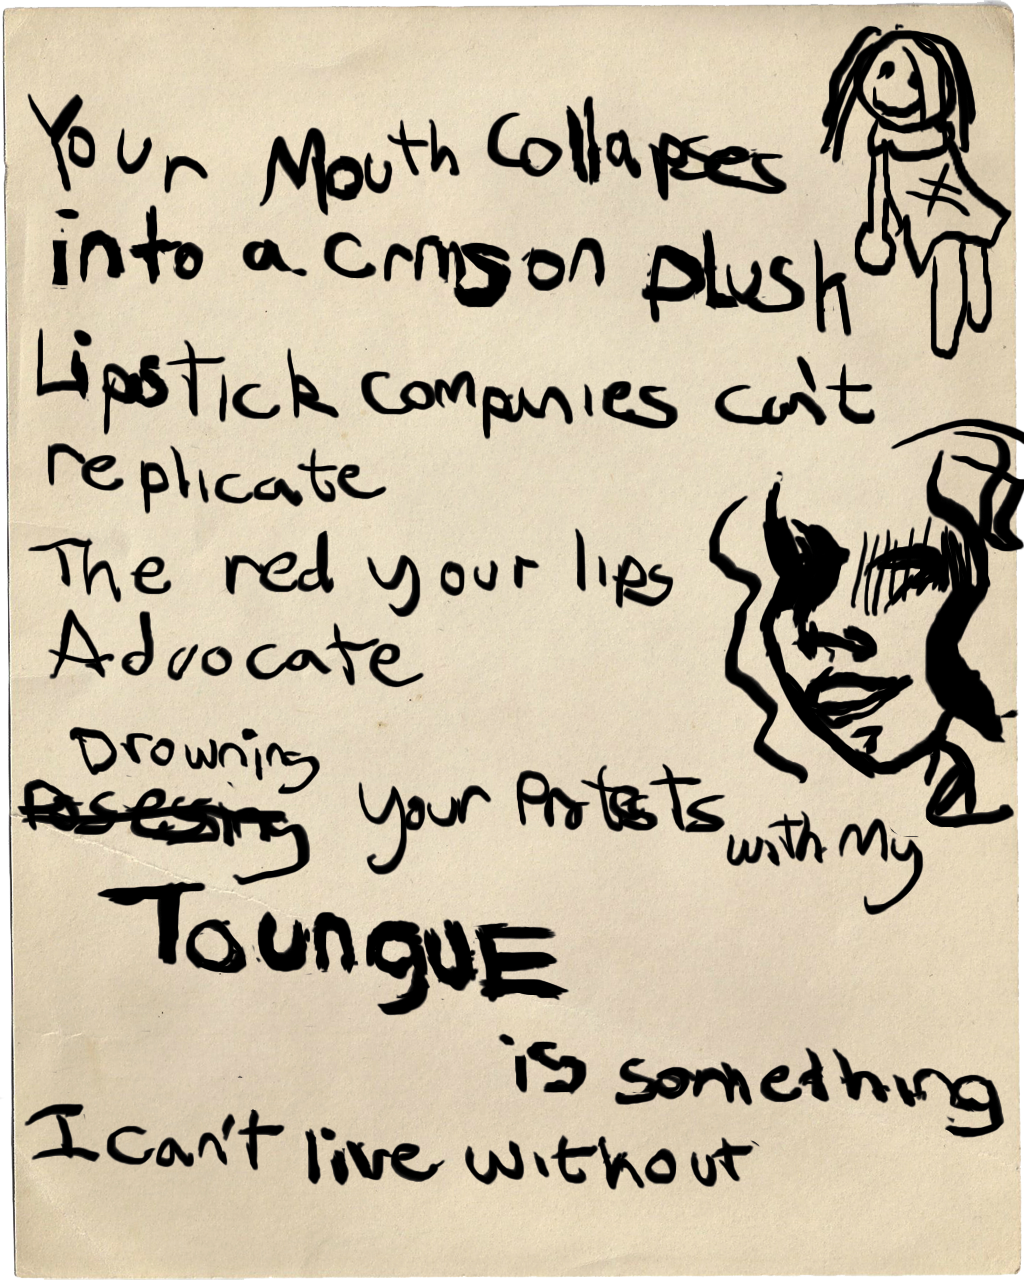 Your Mouth Collapses
into a crmson plush
Lipstick companies can't
replicate
The red your lips
Advocate
Drowning
Posessing your Protests with My
TOUNGUE
is something
I can't live without